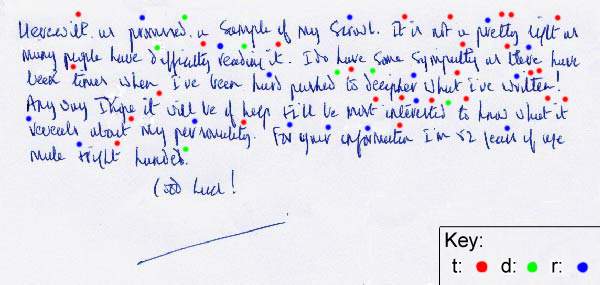 Herewith as promised a sample of my scrawl. It is not a pretty sight as
many people have difficulty reading it. I do have some sympathy as there have
been times when I've been hard pushed to decipher what I've written!
Anyway I hope it will be of help & I'll be most interested to know what it
reveals about my personality. For your information I'm 52 years of age
male & right handed.
Good luck!
Key:
t: d: r: